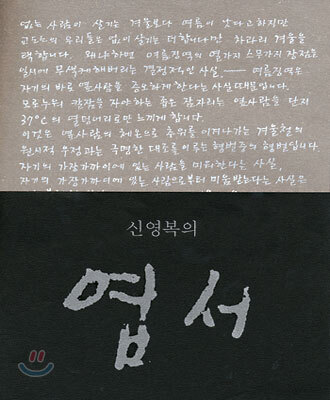 없는 사람이 살기는 겨울보다 여름이 낫다고 하지만
교도소의 우리들은 없이 살기는 더합니다만 차라리 겨울을
택합니다. 왜냐하면 여름징역의 열가지 스무가지 장점을
일시에 무색케해버리는 결정적인 사실. ── 여름징역은
자기의 바로 옆사람을 증오하게 한다는 사실때문입니다.
모로누워 칼잠을 자야하는 좁은 잠자리는 옆사람을 단지
37℃의 열덩어리로만 느끼게 합니다.
이것은 옆사람의 체온으로 추위를 이겨나가는 겨울철의
원시적 우정과는 극명한 대조를 이루는 형벌중의 형벌입니다.
자기의 가장가까이에 있는 사람을 미워한다는 사실,
자기의 가장가까이에 있는 사람으로부터 미움받는다는 사실은
신영복의
엽서